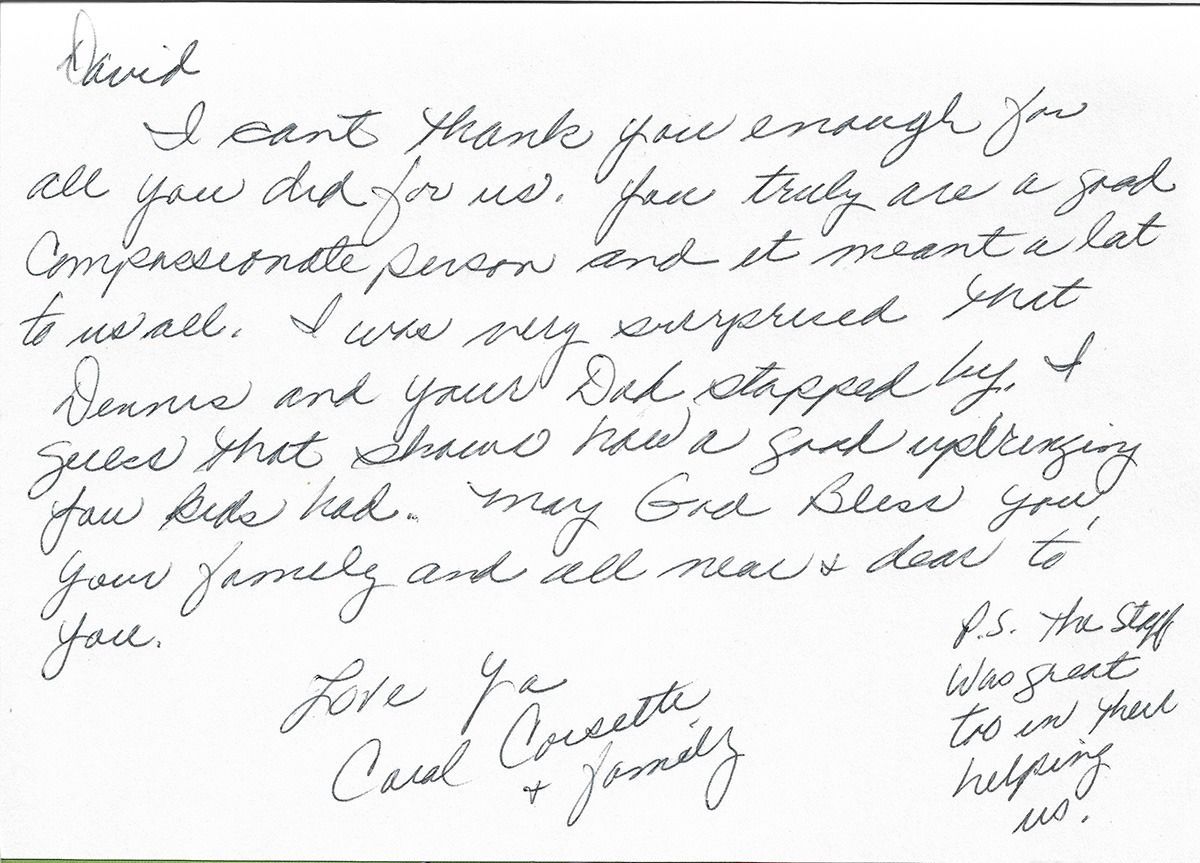 David
I cant thank you enough for
all you did for us. You truly are a good
Compassionate person and it meant a lot
to us all. I was very surprised that
Dennis and your Dad stopped by. I
guess that shows how a good upbringing
you kids had. May God Bless you,
your family and all near & dear to
you.
Love Ya
Carol Corsette
& family
P.S. The Staff
was great
too in their
helping
us.